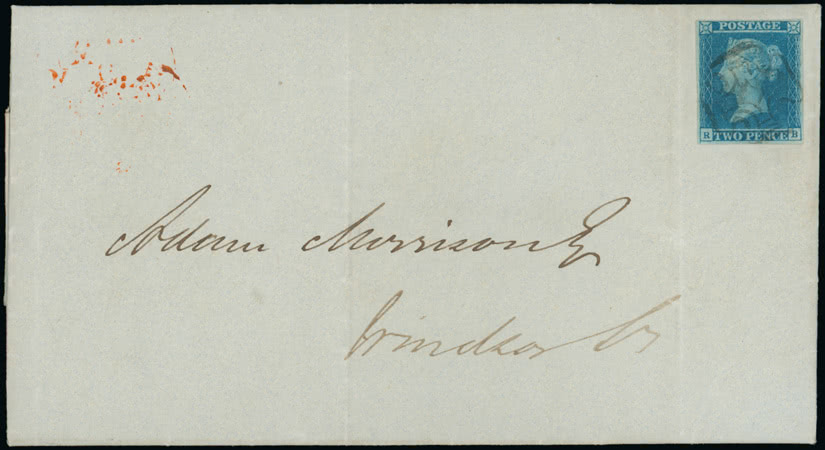 POSTAGE
R TWO PENCE B
Adam Morrison Eq
Windsor